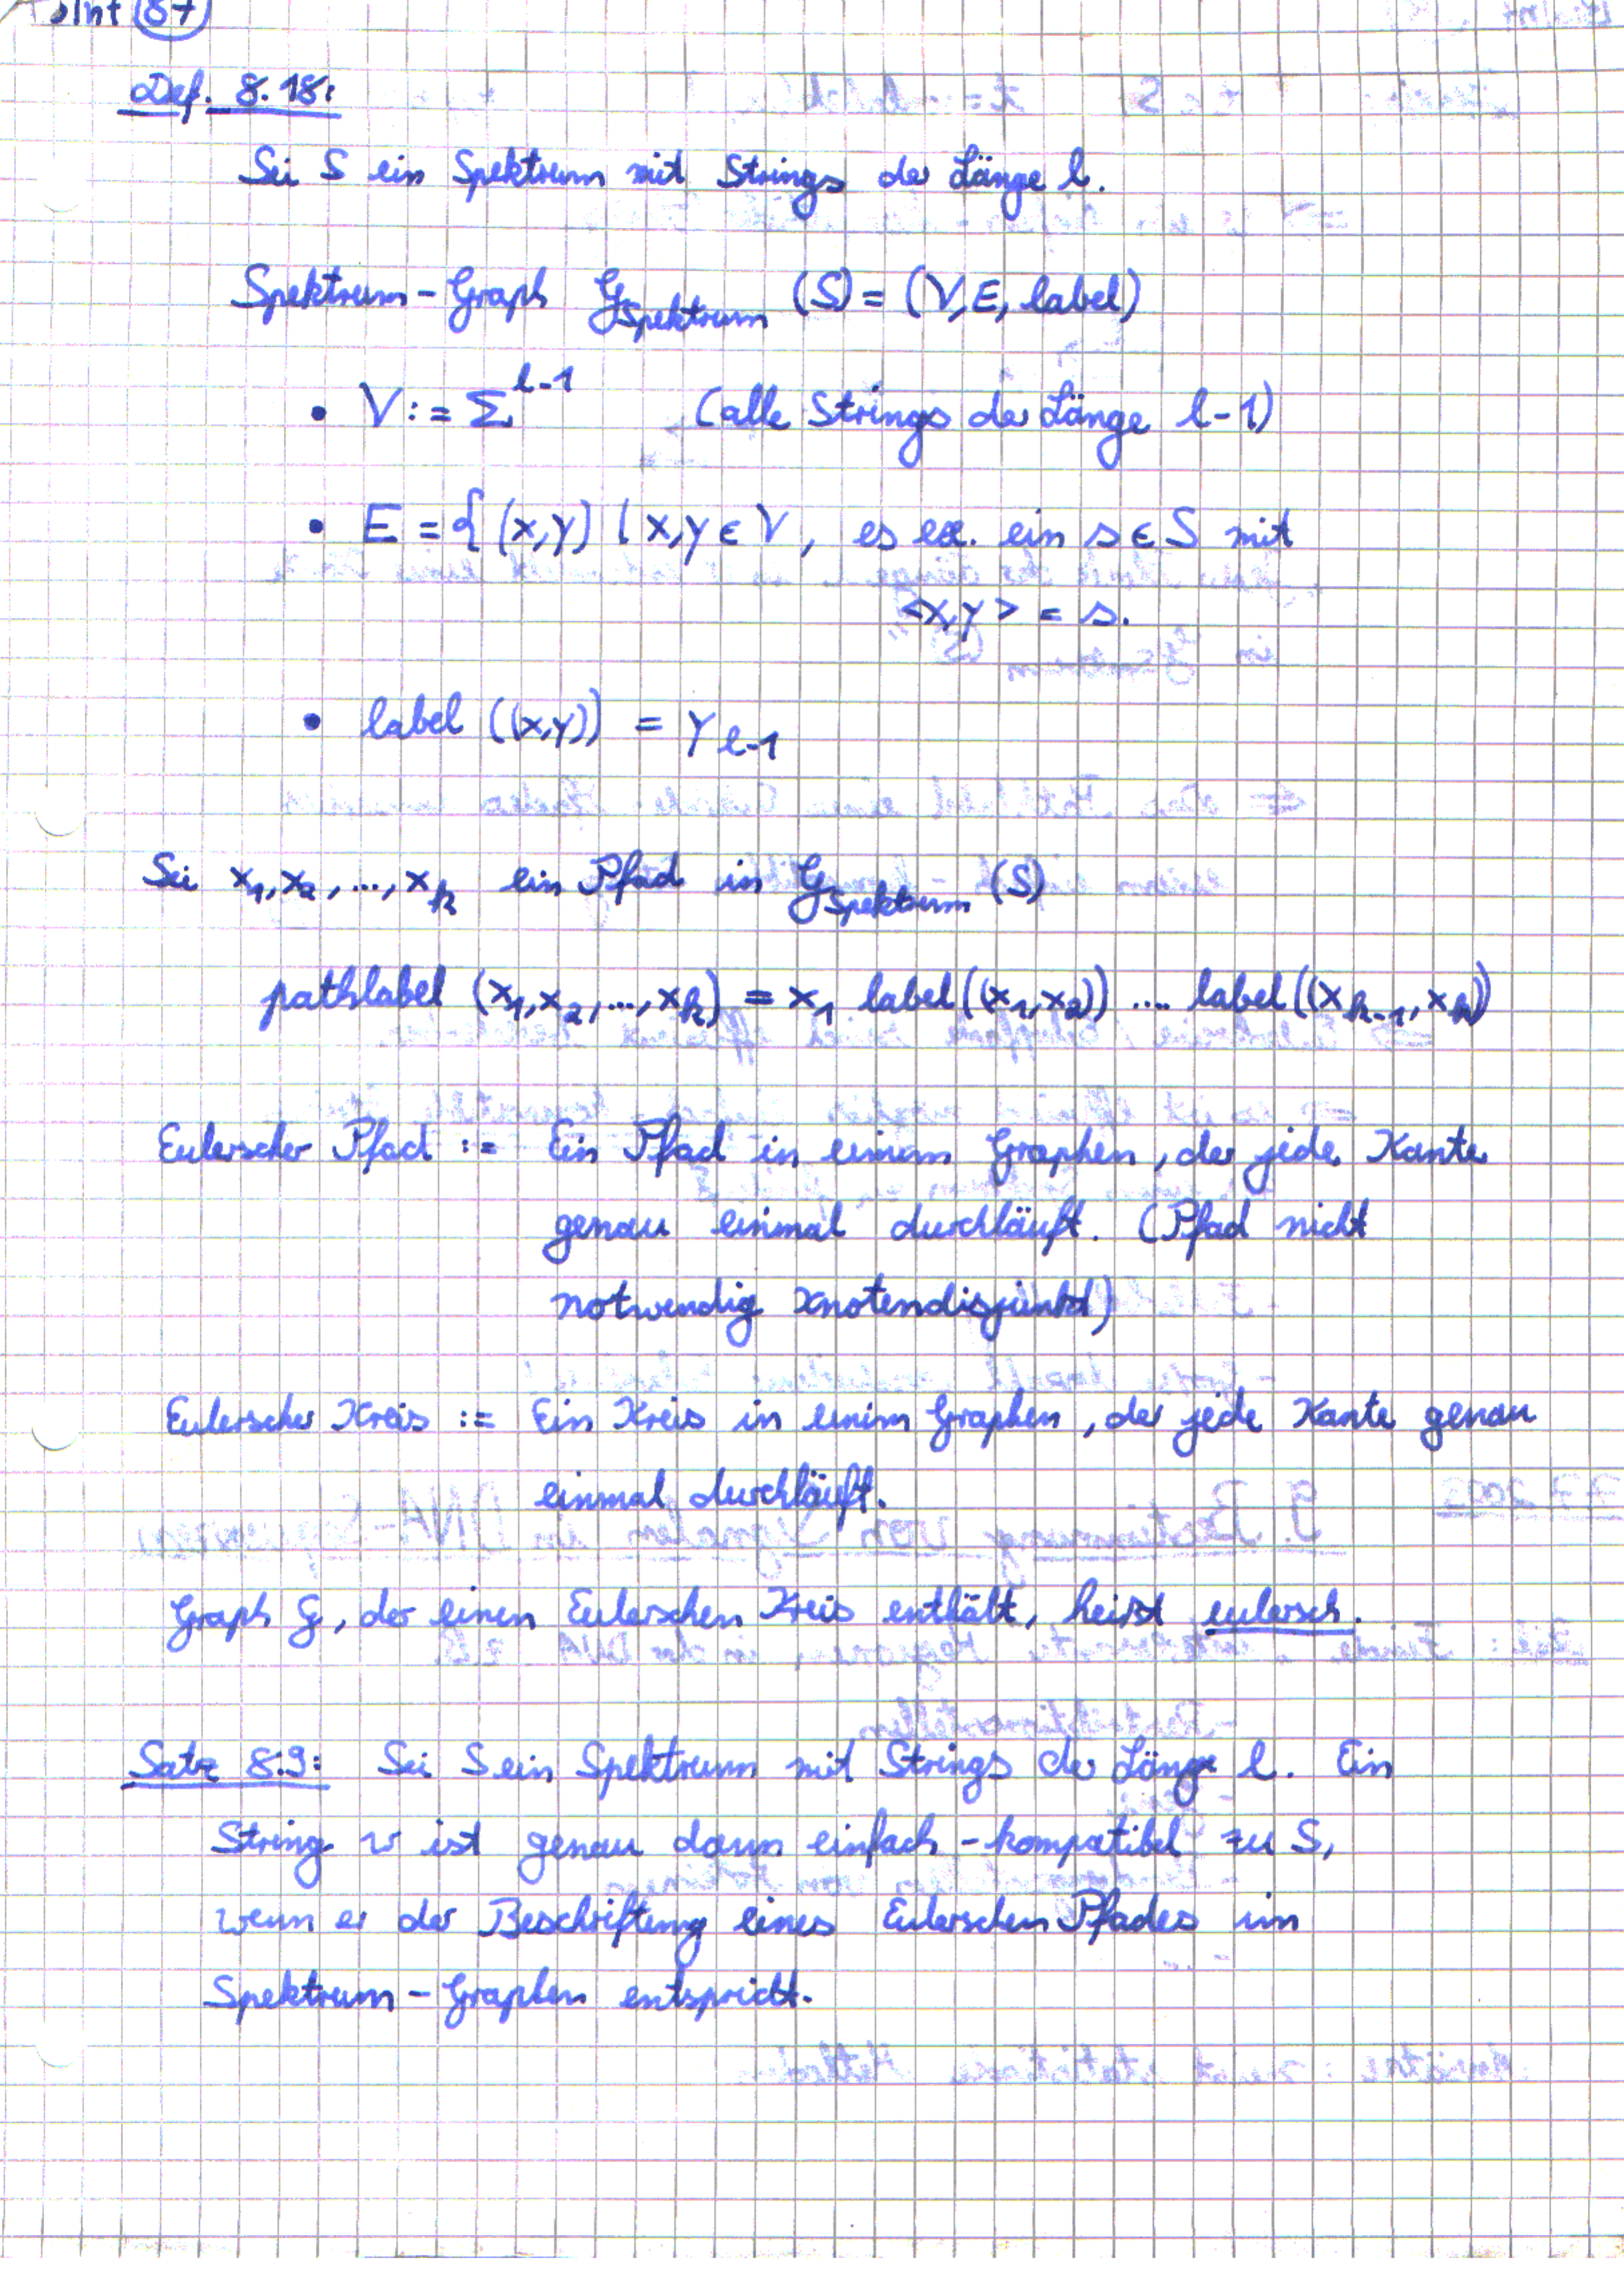 87
Def. 8.18:
Sei S ein Spektrum mit Strings der Länge l.
Spektrum-Graph G_Spektrum (S) = (V, E, label)
• V := Σ^{l-1} (alle Strings der Länge l-1)
• E = { (x,y) | x,y ∈ V, es ex. ein s ∈ S mit
<x,y> = s.
• label ((x,y)) = y_{l-1}
Sei x_1, x_2, ..., x_k ein Pfad in G_Spektrum (S)
pathlabel (x_1, x_2, ..., x_k) = x_1 label((x_1, x_2)) .... label((x_{k-1}, x_k))
Eulerscher Pfad := Ein Pfad in einem Graphen, der jede Kante
genau einmal durchläuft. (Pfad nicht
notwendig knotendisjunkt)
Eulerscher Kreis := Ein Kreis in einem Graphen, der jede Kante genau
einmal durchläuft.
Graph G, der einen Eulerschen Kreis enthält, heisst eulersch.
Satz 8.9: Sei S ein Spektrum mit Strings der Länge l. Ein
String w ist genau dann einfach-kompatibel zu S,
wenn er der Beschriftung eines Eulerschen Pfades im
Spektrum-Graphen entspricht.